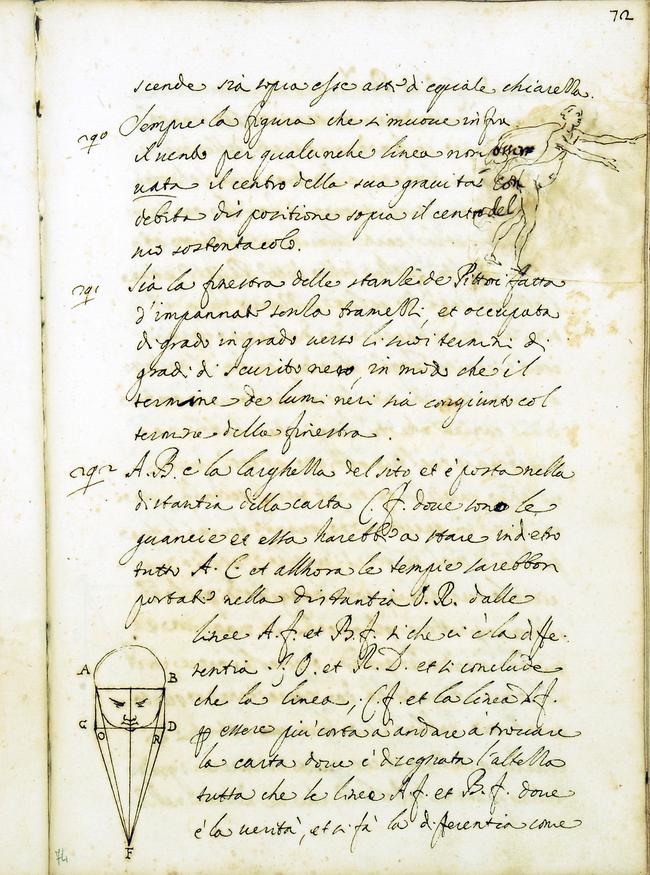 72
scende sia sopra esse asse d'equale chiarezza.
290 Sempre la figura che si muove infra
il vento per qualunche linea non osser
vata il centro della sua gravità con
debita dispositione sopra il centro del
suo sostentacolo.
291 Sia la finestra delle stantie de Pittori fatta
d'impannate senza tramezzi, et occupata
di grado in grado verso li suoi termini di
gradi di scurito nero, in modo che il
termine de lumi neri sia congiunto col
termine della finestra.
292 A.B. è la larghezza del sito et è posta nella
distantia della carta C.f. dove sono le
guancie et essa harebbe a stare indietro
tutto A. C. et allhora le tempie sarebbon
portate nella distantia O. R. dalle
linee A.f. et B.f. si che ci è la diffe.
A B
rentia C. O. et R. D. et si conclude
che la linea, C.f. et la linea D.f.
C O R D
p essere più corta a andare à trovare
la carta dove è disegnata l'altezza
tutta che le linee A.f. et B.f. dove
F
è la verità, et si fà la differentia come
74